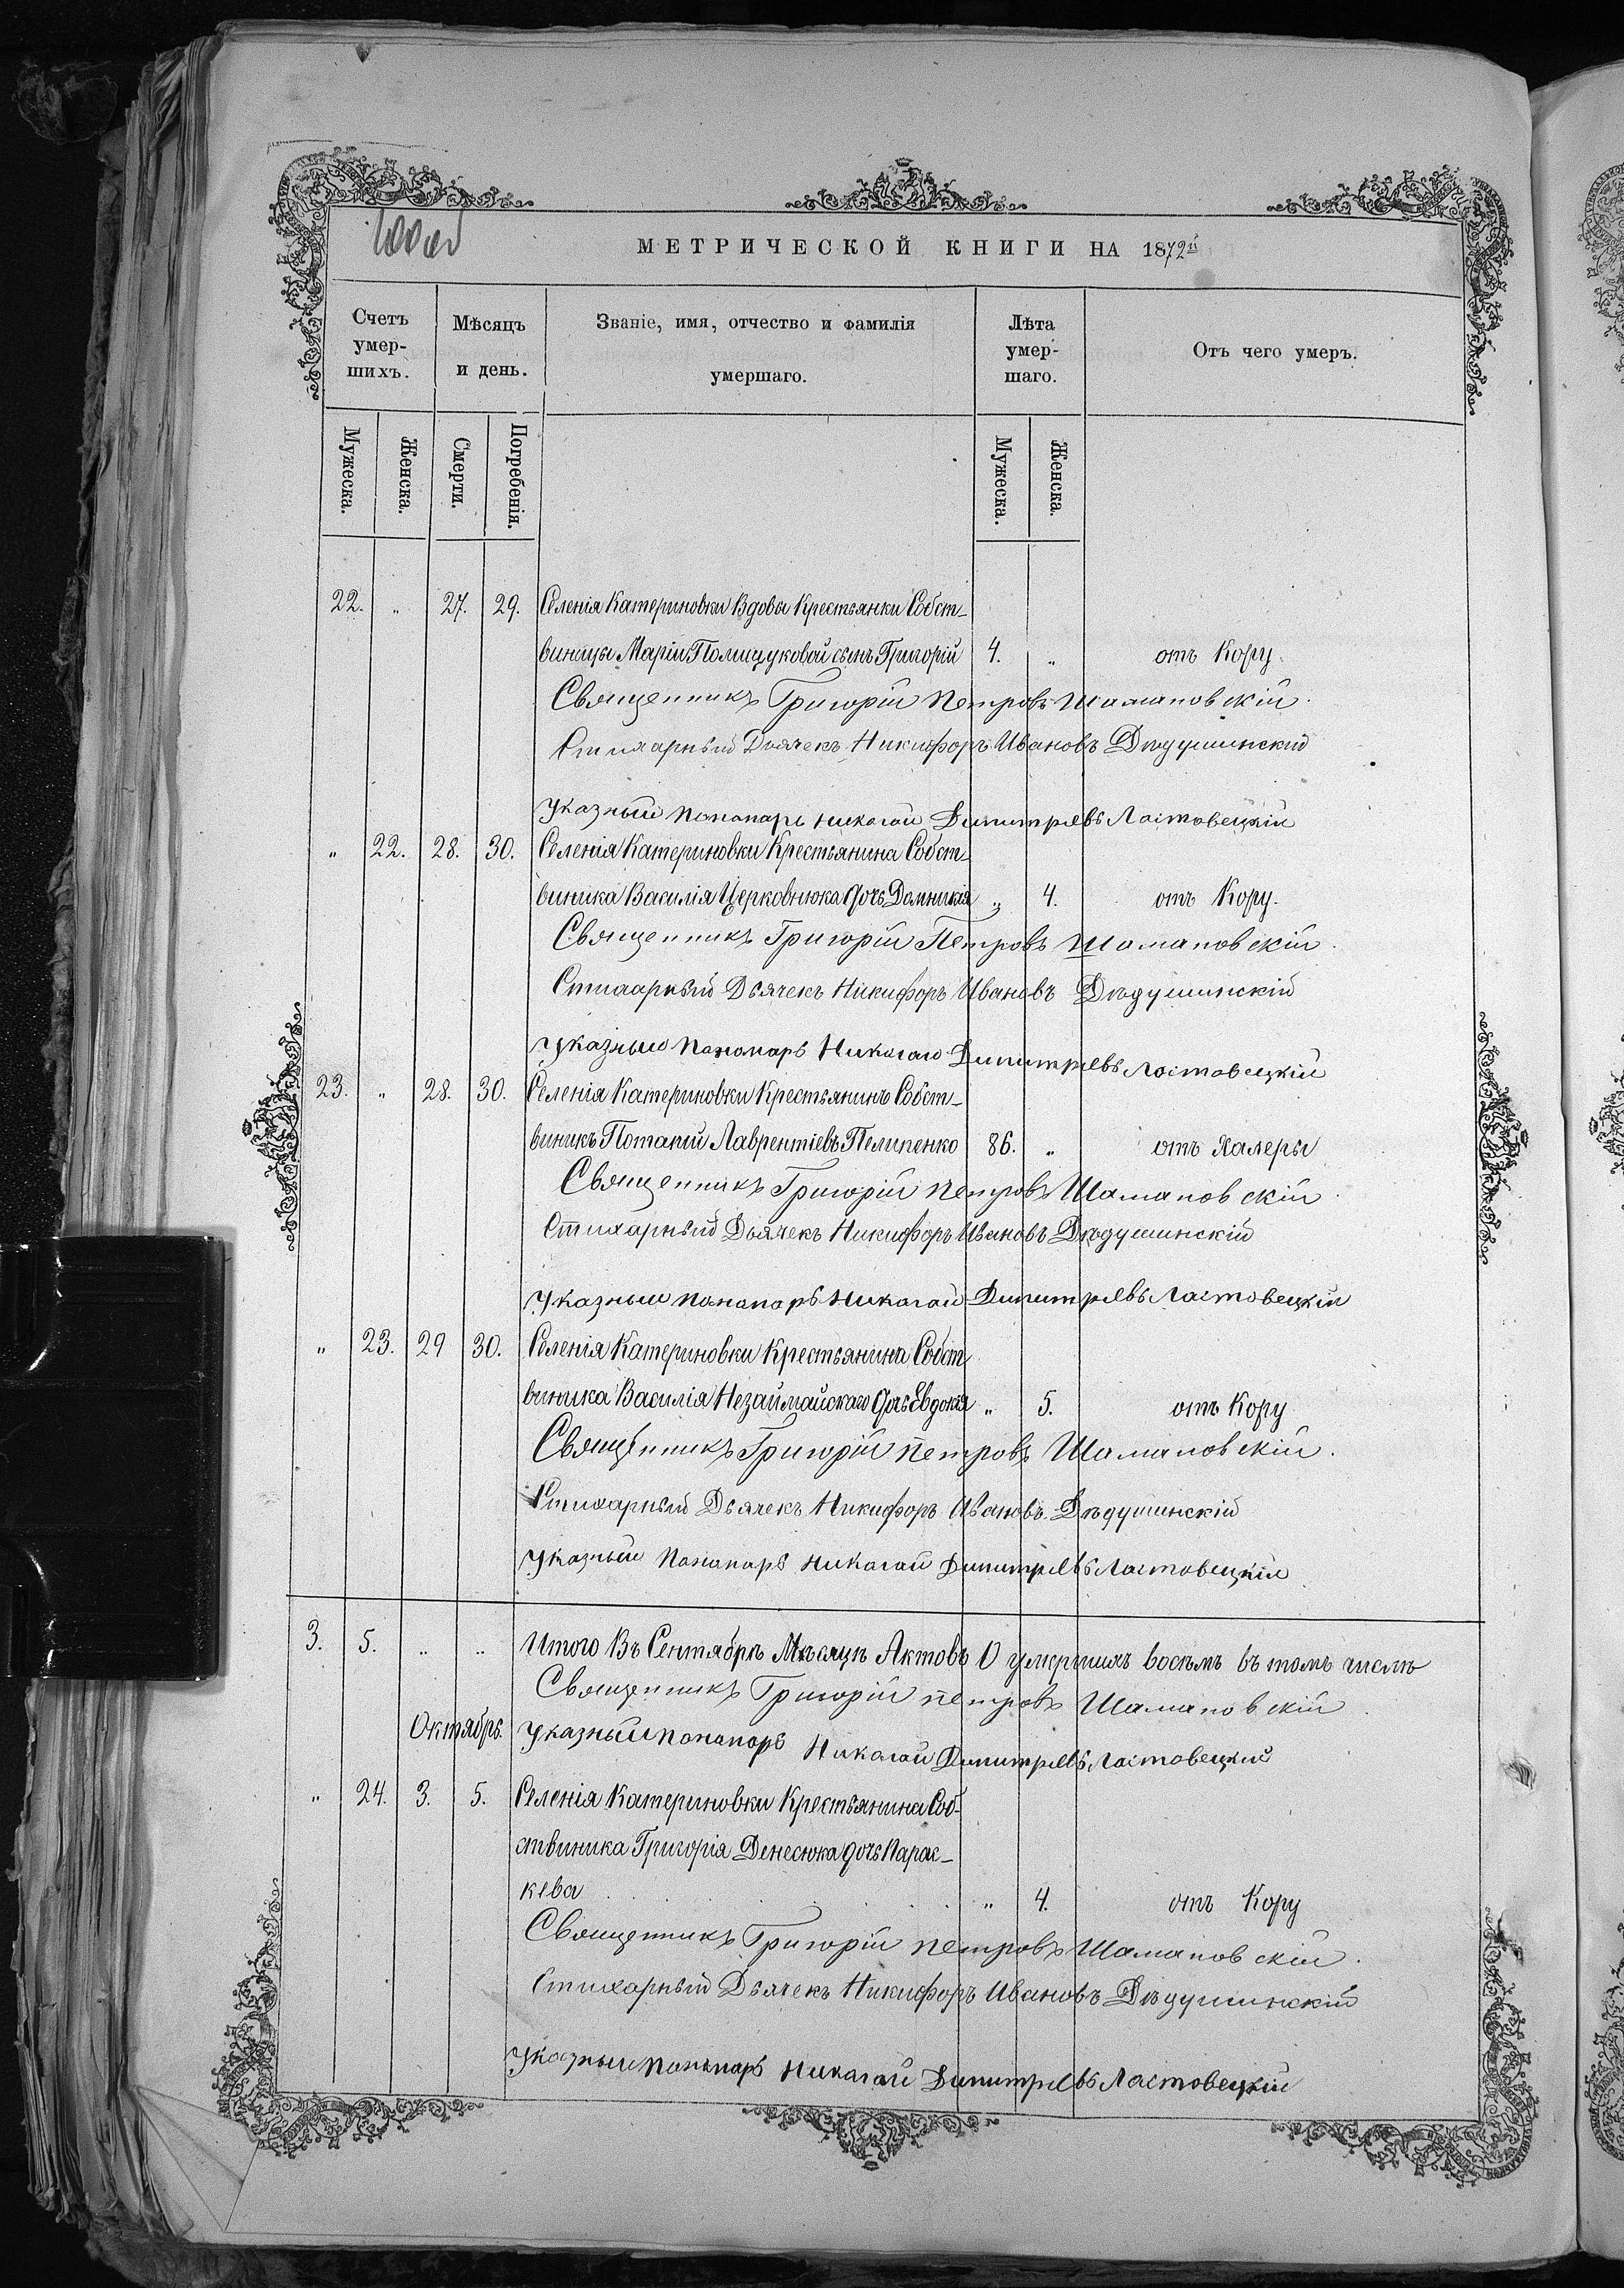 МЕТРИЧЕСКОЙ КНИГИ НА 1872й
Счетъ умершихъ.
Мѣсяцъ и день.
Званіе, имя, отчество и фамилія умершаго.
Лѣта умершаго.
Отъ чего умеръ.
Мужеска. Женска. Смерти. Погребенія. Мужеска. Женска.
22. „ 27. 29. Селенія Катериновки Вдовы Крестьянки Собст-
виницы Маріи Полищуковой сынъ Григорій 4. „ отъ Кору.
Священникъ Григорій Петровъ Шамановскій.
Стихарный Дьячекъ Никифоръ Ивановъ Дѣдушинскій
Указный Пономарь Николай Димитріевъ Ластовецкій
„ 22. 28. 30. Селенія Катериновки Крестьянина Собст-
виника Василія Церковнюка дочь Домникія „ 4. отъ Кору.
Священникъ Григорій Петровъ Шамановскій.
Стихарный Дьячекъ Никифоръ Ивановъ Дѣдушинскій
Указный Пономарь Николай Димитріевъ Ластовецкій
23. „ 28. 30. Селенія Катериновки Крестьянинъ Собст-
виникъ Потапій Лаврентіевъ Пелипенко 86. „ отъ Халеры
Священникъ Григорій Петровъ Шамановскій.
Стихарный Дьячекъ Никифоръ Ивановъ Дѣдушинскій
Указный Пономарь Николай Димитріевъ Ластовецкій
„ 23. 29 30. Селенія Катериновки Крестьянина Собст
виника Василія Незаймайскаго дочь Евдокія „ 5. отъ Кору
Священникъ Григорій Петровъ Шамановскій.
Стихарный Дьячекъ Никифоръ Ивановъ Дѣдушинскій
Указный Пономарь Николай Димитріевъ Ластовецкій
3. 5. „ „ Итого Въ Сентябрѣ Мѣсяцѣ Актовъ О умершихъ восемь въ томъ числѣ
Священникъ Григорій Петровъ Шамановскій.
Октябрь. Указный Пономарь Николай Димитріевъ Ластовецкій
„ 24. 3. 5. Селенія Катериновки Крестьянина Соб-
ствиника Григорія Денесюка дочь Парас-
кева „ 4. отъ Кору
Священникъ Григорій Петровъ Шамановскій.
Стихарный Дьячекъ Никифоръ Ивановъ Дѣдушинскій
Указный Пономарь Николай Димитріевъ Ластовецкій